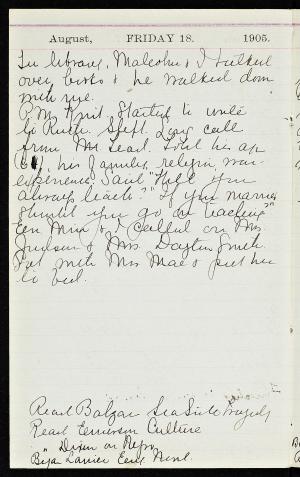 August, FRIDAY 18. 1905.
In library. Malcolm & I talked
over books & he walked down
with me.
P.M. Knit. Started to write
to Ruth. Slept. Long call
from Mr Searl. Told his age
his family, religion, war
experience. Said "Will you
always teach?" "If you married
should you go on teaching?"
Eve Miss & I called on Mrs
Judson & Mrs. Dayton Smith
Sat with Mrs Mac & put her
to bed.
Read Balzac Sea Side Tragedy
Read Emerson Culture
" Dixon on Negro
Began Lanier Eng. Novel.